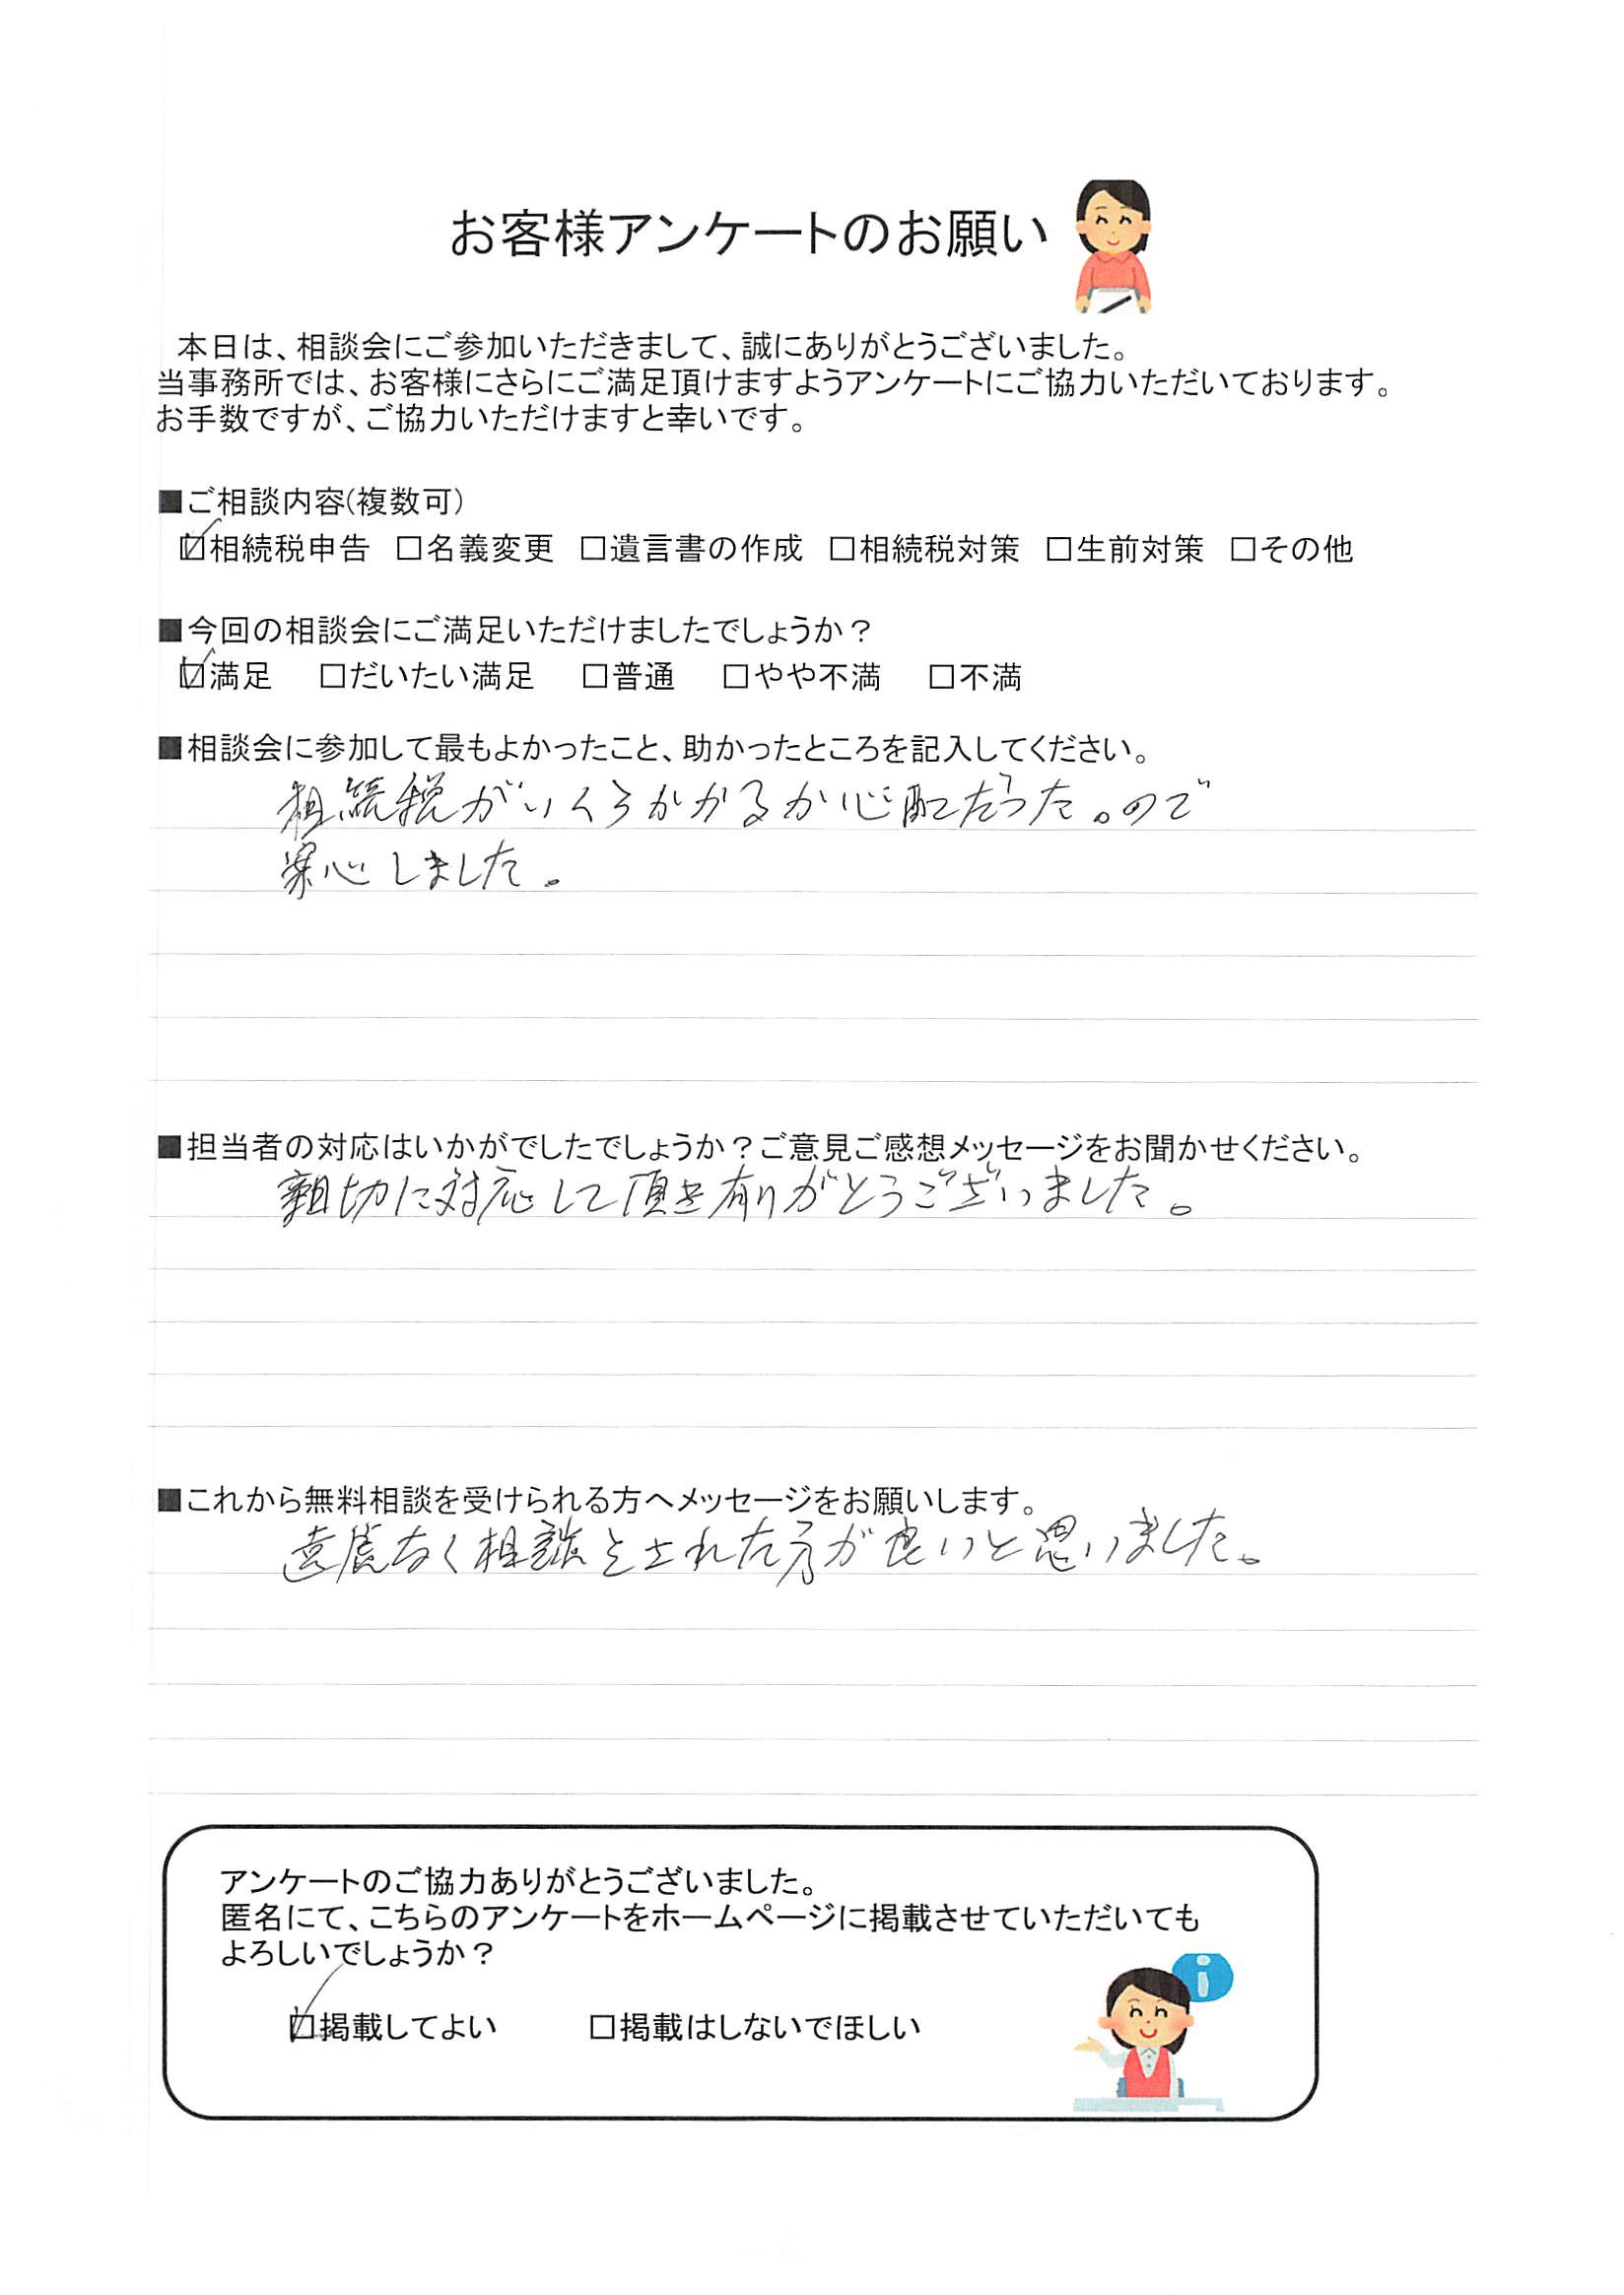 お客様アンケートのお願い
本日は、相談会にご参加いただきまして、誠にありがとうございました。
当事務所では、お客様にさらにご満足頂けますようアンケートにご協力いただいております。
お手数ですが、ご協力いただけますと幸いです。
■ご相談内容(複数可)
☑相続税申告 □名義変更 □遺言書の作成 □相続税対策 □生前対策 □その他
■今回の相談会にご満足いただけましたでしょうか？
☑満足 □だいたい満足 □普通 □やや不満 □不満
■相談会に参加して最もよかったこと、助かったところを記入してください。
相続税がいくらかかるか心配だった。ので
案心しました。
■担当者の対応はいかがでしたでしょうか？ご意見ご感想メッセージをお聞かせください。
親切に対応して頂き有りがとうございました。
■これから無料相談を受けられる方へメッセージをお願いします。
遠慮なく相談をされた方が良いと思いました。
アンケートのご協力ありがとうございました。
匿名にて、こちらのアンケートをホームページに掲載させていただいても
よろしいでしょうか？
☑掲載してよい □掲載はしないでほしい